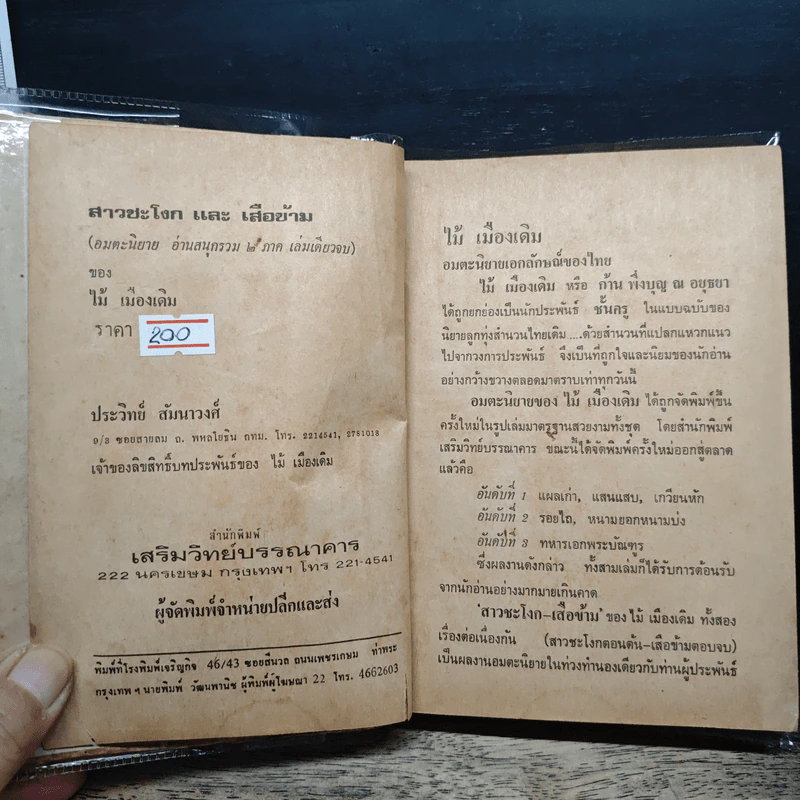 สาวชะโงก และ เสือข้าม
(อมตะนิยาย อ่านสนุกรวม ๒ ภาค เล่มเดียวจบ)
ของ
ไม้ เมืองเดิม
ราคา 200
ประวิทย์ สัมนาวงศ์
9/3 ซอยสายลม ถ. พหลโยธิน กทม. โทร. 2214541, 2781018
เจ้าของลิขสิทธิ์บทประพันธ์ของ ไม้ เมืองเดิม
สำนักพิมพ์
เสริมวิทย์บรรณาคาร
222 นครเขษม กรุงเทพฯ โทร 221-4541
ผู้จัดพิมพ์จำหน่ายปลีกและส่ง
พิมพ์ที่โรงพิมพ์เจริญกิจ 46/43 ซอยสีนวล ถนนเพชรเกษม ท่าพระ
กรุงเทพ ฯ นายพิมพ์ วัฒนพานิช ผู้พิมพ์ผู้โฆษณา 22 โทร. 4662603
ไม้ เมืองเดิม
อมตะนิยายเอกลักษณ์ของไทย
ไม้ เมืองเดิม หรือ ก้าน พึ่งบุญ ณ อยุธยา
ได้ถูกยกย่องเป็นนักประพันธ์ ชั้นครู ในแบบฉบับของ
นิยายลูกทุ่งสำนวนไทยเดิม ....ด้วยสำนวนที่แปลกแหวกแนว
ไปจากวงการประพันธ์ จึงเป็นที่ถูกใจและนิยมของนักอ่าน
อย่างกว้างขวางตลอดมาตราบเท่าทุกวันนี้
อมตะนิยายของ ไม้ เมืองเดิม ได้ถูกจัดพิมพ์ขึ้น
ครั้งใหม่ในรูปเล่มมาตรฐานสวยงามทั้งชุด โดยสำนักพิมพ์
เสริมวิทย์บรรณาคาร ขณะนี้ได้จัดพิมพ์ครั้งใหม่ออกสู่ตลาด
แล้วคือ
อันดับที่ 1 แผลเก่า, แสนแสบ, เกวียนหัก
อันดับที่ 2 รอยไถ, หนามยอกหนามบ่ง
อันดับที่ 3 ทหารเอกพระบัณฑูร
ซึ่งผลงานดังกล่าว ทั้งสามเล่มก็ได้รับการต้อนรับ
จากนักอ่านอย่างมากมายเกินคาด
'สาวชะโงก-เสือข้าม' ของ ไม้ เมืองเดิม ทั้งสอง
เรื่องต่อเนื่องกัน (สาวชะโงกตอนต้น-เสือข้ามตอบจบ)
เป็นผลงานอมตะนิยายในท่วงทำนองเดียวกับท่านผู้ประพันธ์